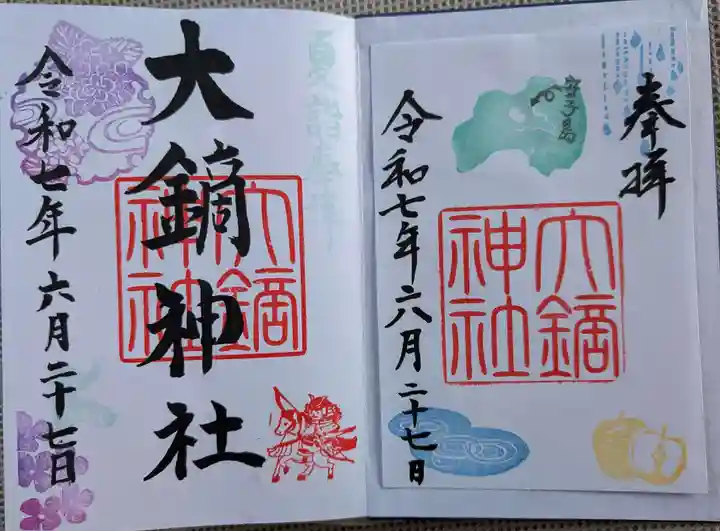 奉拝
大鏑神社
安子島
令和七年六月二十七日
大鏑神社
大鏑神社
令和七年六月二十七日